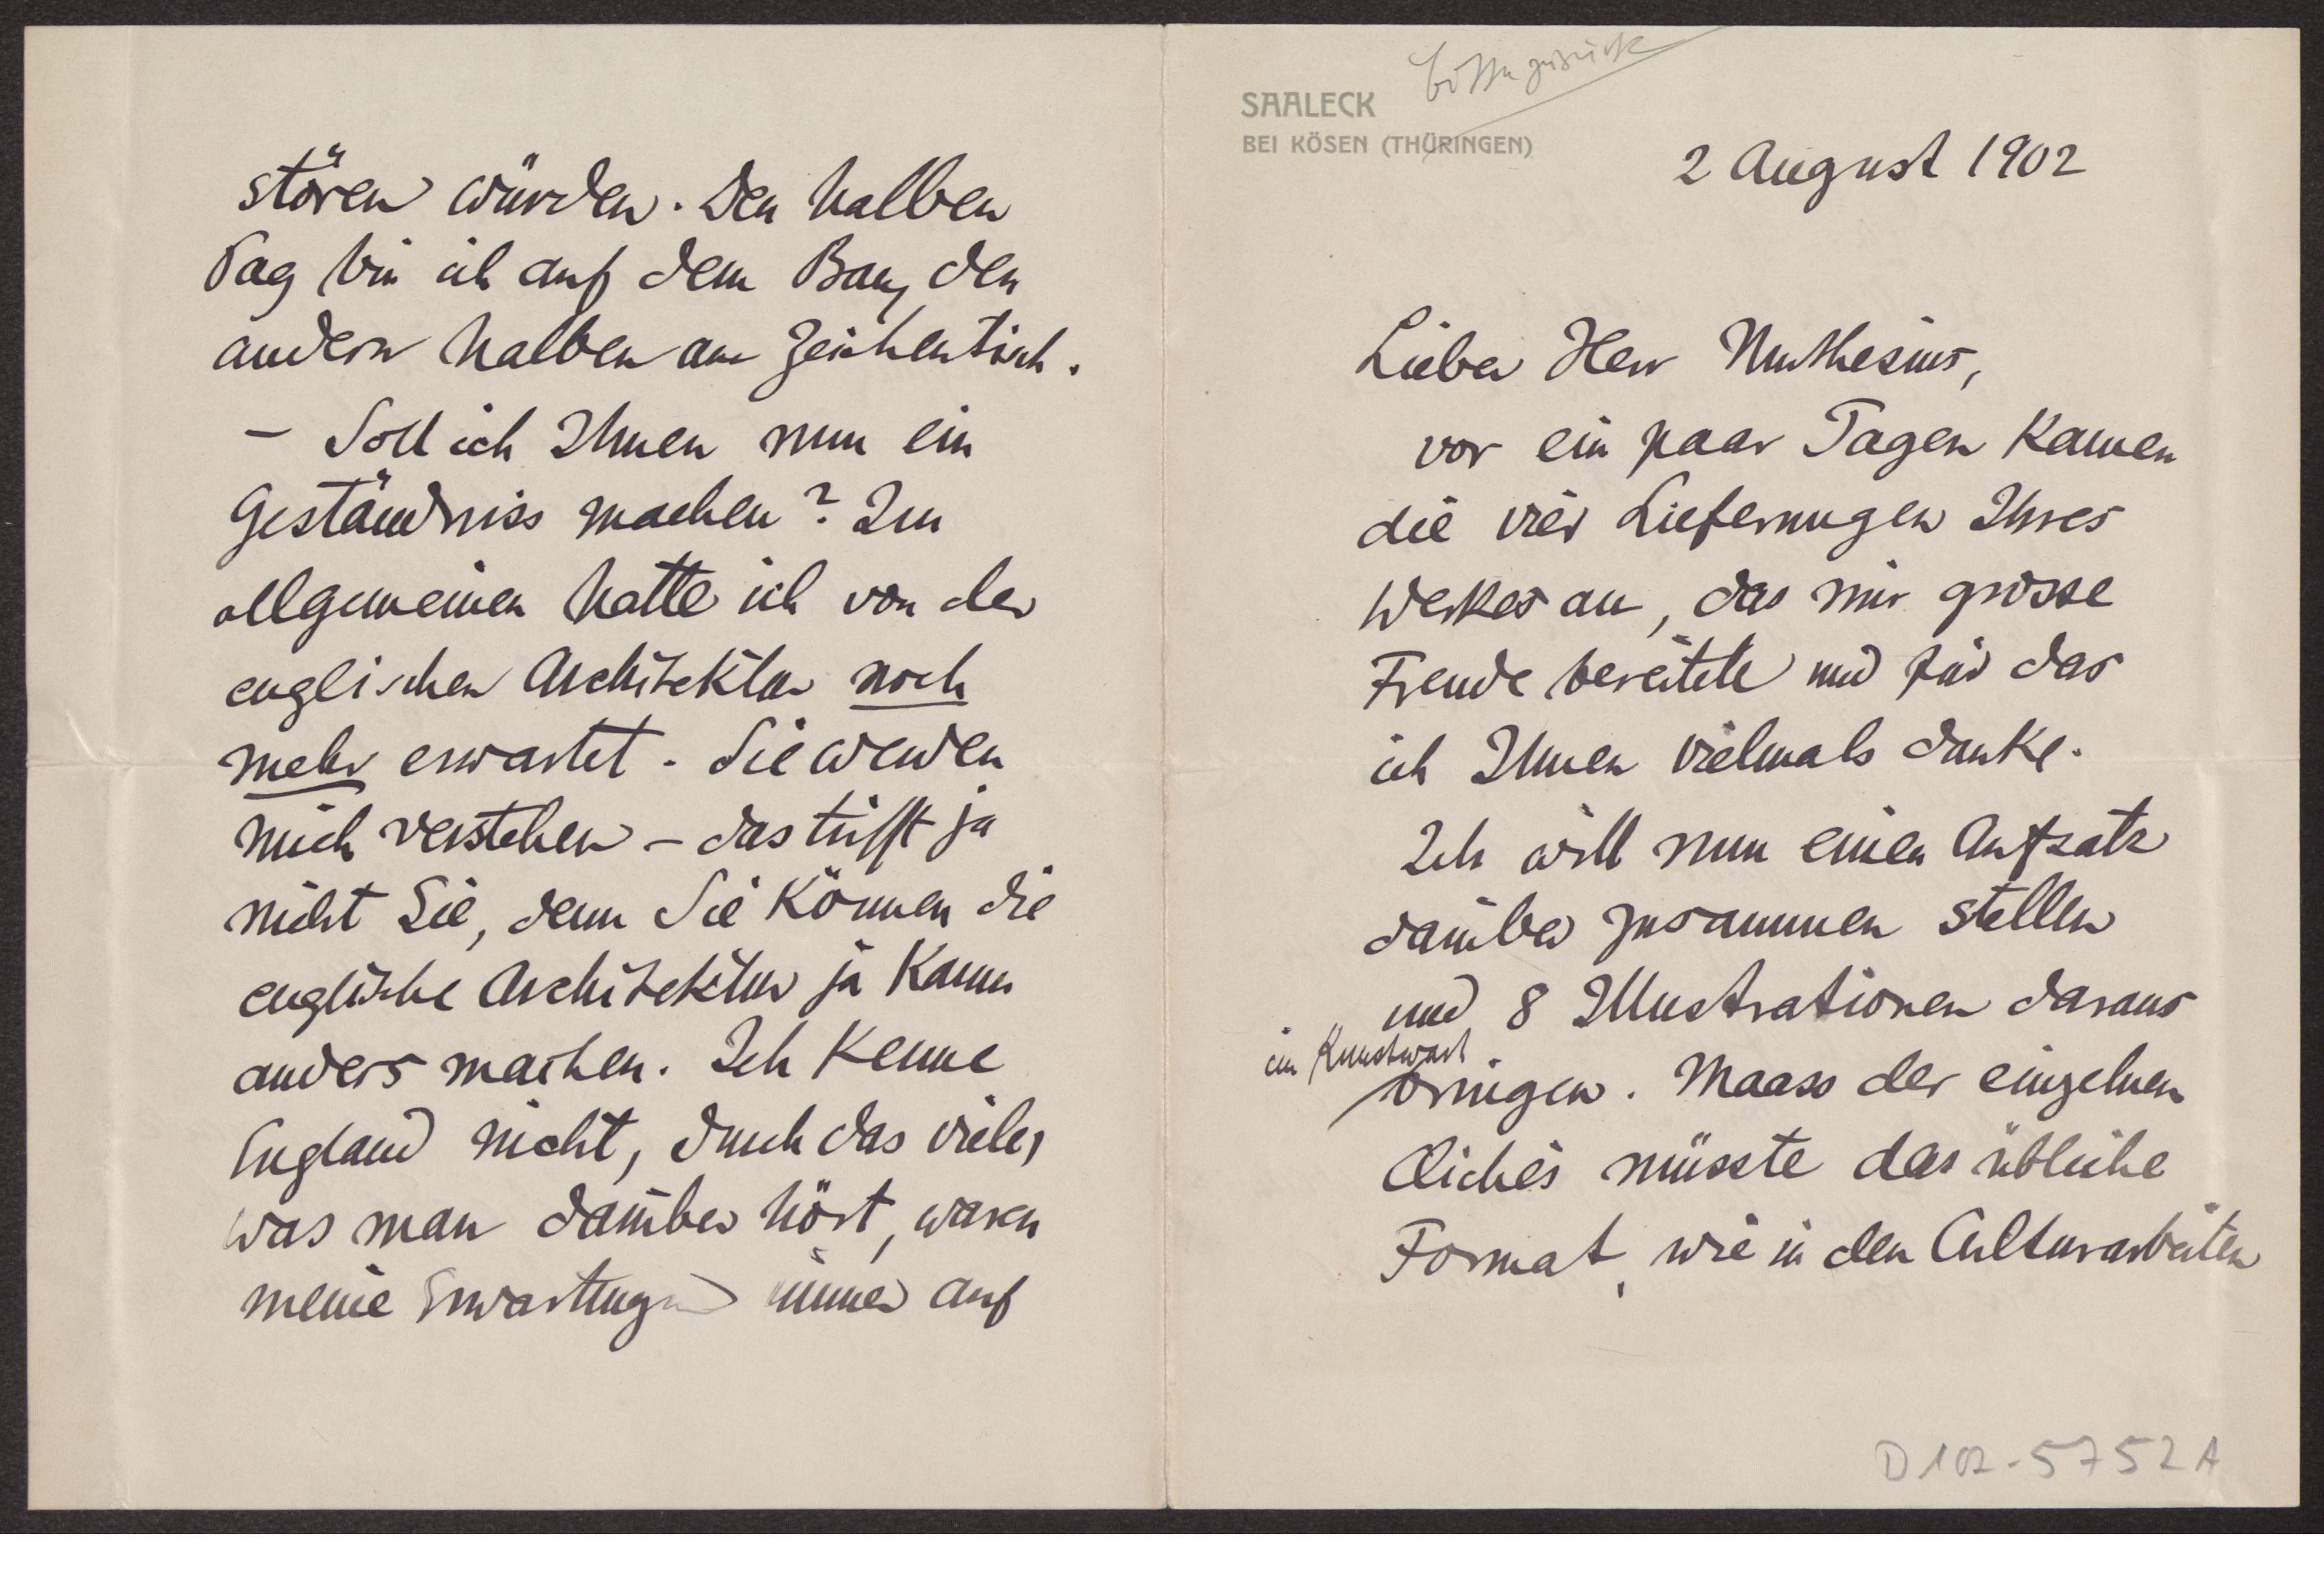 bitte zurück
SAALECK
BEI KÖSEN (THÜRINGEN)
2 August 1902
Lieber Herr Muthesius,
vor ein paar Tagen kamen
die vier Lieferungen Ihres
Werkes an, das mir grosse
Freude bereitete und für das
ich Ihnen vielmals danke.
Ich will nun einen Aufsatz
darüber zusammen stellen
und 8 Illustrationen daraus
im Kunstwart
bringen. Maass der einzelnen
Clichés müsste das übliche
Format, wie in den Culturarbeiten
D102-5752A
stören würden. Den halben
Tag bin ich auf dem Bau, den
andern halben am Zeichentisch.
– Soll ich Ihnen nun ein
Geständniss machen? Im
allgemeinen hatte ich von der
englischen Architektur noch
mehr erwartet. Sie werden
mich verstehen – das trifft ja
nicht Sie, denn Sie können die
englische Architektur ja kaum
anders machen. Ich kenne
England nicht, durch das viele,
was man darüber hört, waren
meine Erwartungen immer auf